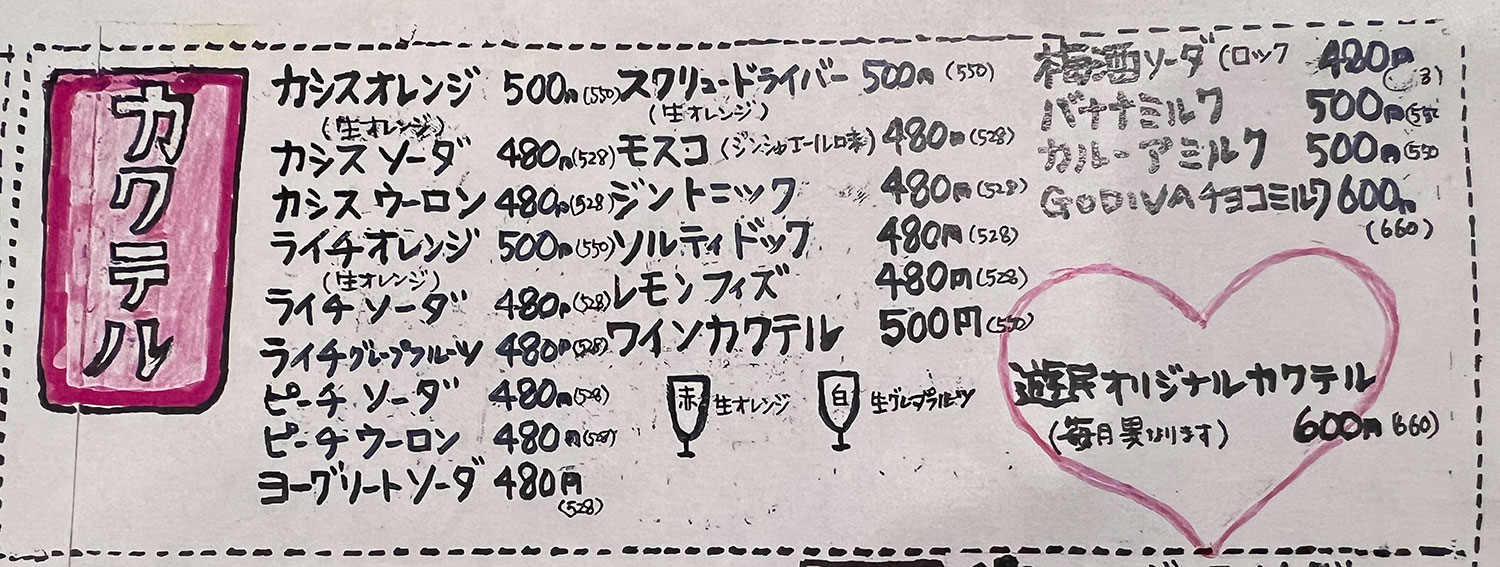 カクテル
カシスオレンジ 500円(550)
(生オレンジ)
カシスソーダ 480円(528)
カシスウーロン 480円(528)
ライチオレンジ 500円(550)
(生オレンジ)
ライチソーダ 480円(528)
ライチグレープフルーツ 480円(528)
ピーチソーダ 480円(528)
ピーチウーロン 480円(528)
ヨーグリートソーダ 480円
(528)
スクリュードライバー 500円(550)
(生オレンジ)
モスコ(ジンジャエール口味) 480円(528)
ジントニック 480円(528)
ソルティドッグ 480円(528)
レモンフィズ 480円(528)
ワインカクテル 500円(550)
赤 生オレンジ
白 生グレープフルーツ
梅酒ソーダ(ロック 480円
バナナミルク 500円(550
カルーアミルク 500円(550
GODIVAチョコミルク 600円
(660)
遊民オリジナルカクテル
(毎月異なります) 600円(660)